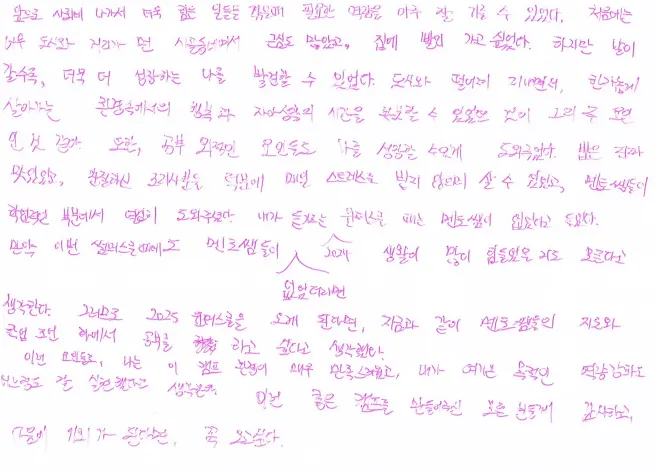 앞으로 사회에 나가서 더욱 힘든 일들을 겪을때 필요한 역량을 아주 잘 기를 수 있었다. 처음에는
너무 도시와 거리가 먼 시골동네여서 걱정도 많았고, 집에 빨리 가고 싶었다. 하지만 날이
갈수록, 더욱 더 성장하는 나를 발견할 수 있었다. 도시와 떨어져 지내면서, 한가롭게
살아가는 환경속에서의 행복과 자아성찰의 시간을 보낼 수 있었던 것이
인 것 같다. 또한, 공부 외적인 요인들도 나를 성장할 수있게 도와주었다. 밥은
맛있었고, 조리사분들 덕분에 매일 스트레스를 받지 않으며 살 수 있었고, 멘토쌤들이
학업적인 부분에서 열심히 도와주셨다. 내가 듣기로는 윈터스쿨 때는 멘토쌤이 없었다고 들었다.
만약 이번 썸머스쿨때에도 멘토쌤들이 없었더라면 생활이 많이 힘들었을 지도 모른다고
생각한다. 그러므로 2025 윈터스쿨을 오게 된다면, 지금과 같이 멘토쌤들의 지도와
조언 하에서 공부를 하고 싶다고 생각했다.
이번 나는 이 캠프 매우 만족스러웠고, 내가 여기온 목적인 역량강화도
잘 실현했다고 생각한다. 이런 좋은 캠프를 만들어주신 모든 분들께 감사하고,
다음에 기회가 된다면, 꼭 오고싶다.